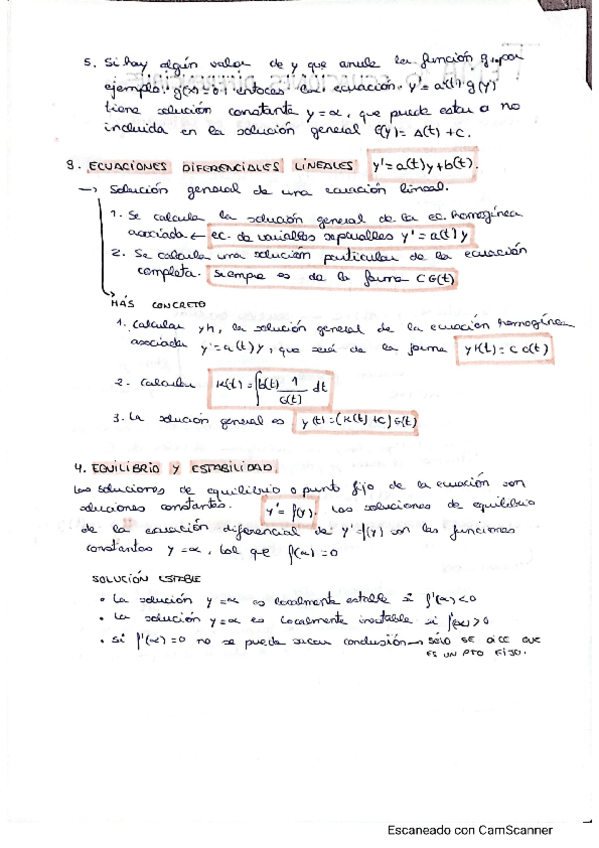 5. Si hay algún valor de y que anule la función g, por
ejemplo: g(α)=0, entoces la ecuación. y' = a(t)·g(y)
tiene solución constante y=α, que puede estar o no
incluida en la solución general G(y)= A(t)+C.
3. ECUACIONES DIFERENCIALES LINEALES y'=a(t)y+b(t).
→ Solución general de una ecuación lineal.
1. Se calcula la solución general de la ec. homogénea
asociada ← ec. de variables separables y' = a(t)y
2. Se calcula una solución particular de la ecuación
completa. Siempre es de la forma C G(t)
MÁS CONCRETO
1. Calcular yh, la solución general de la ecuación homogénea
asociada y'=a(t)y, que será de la forma yh(t)=C G(t)
2. Calcular K(t)=∫b(t) 1/G(t) dt
3. La solución general es y(t)=(K(t)+C)G(t)
4. EQUILIBRIO Y ESTABILIDAD.
Las soluciones de equilibrio o punto fijo de la ecuación son
soluciones constantes. y'= f(y). Las soluciones de equilibrio
de la ecuación diferencial de y'=f(y) son las funciones
constantes y=α, tal que f(α)=0
SOLUCIÓN ESTABLE
• La solución y=α es localmente estable si f'(α)<0
• La solución y=α es localmente inestable si f'(α)>0
• Si f'(α)=0 no se puede sacar conclusión → SÓLO SE DICE QUE
ES UN PTO FIJO.
Escaneado con CamScanner